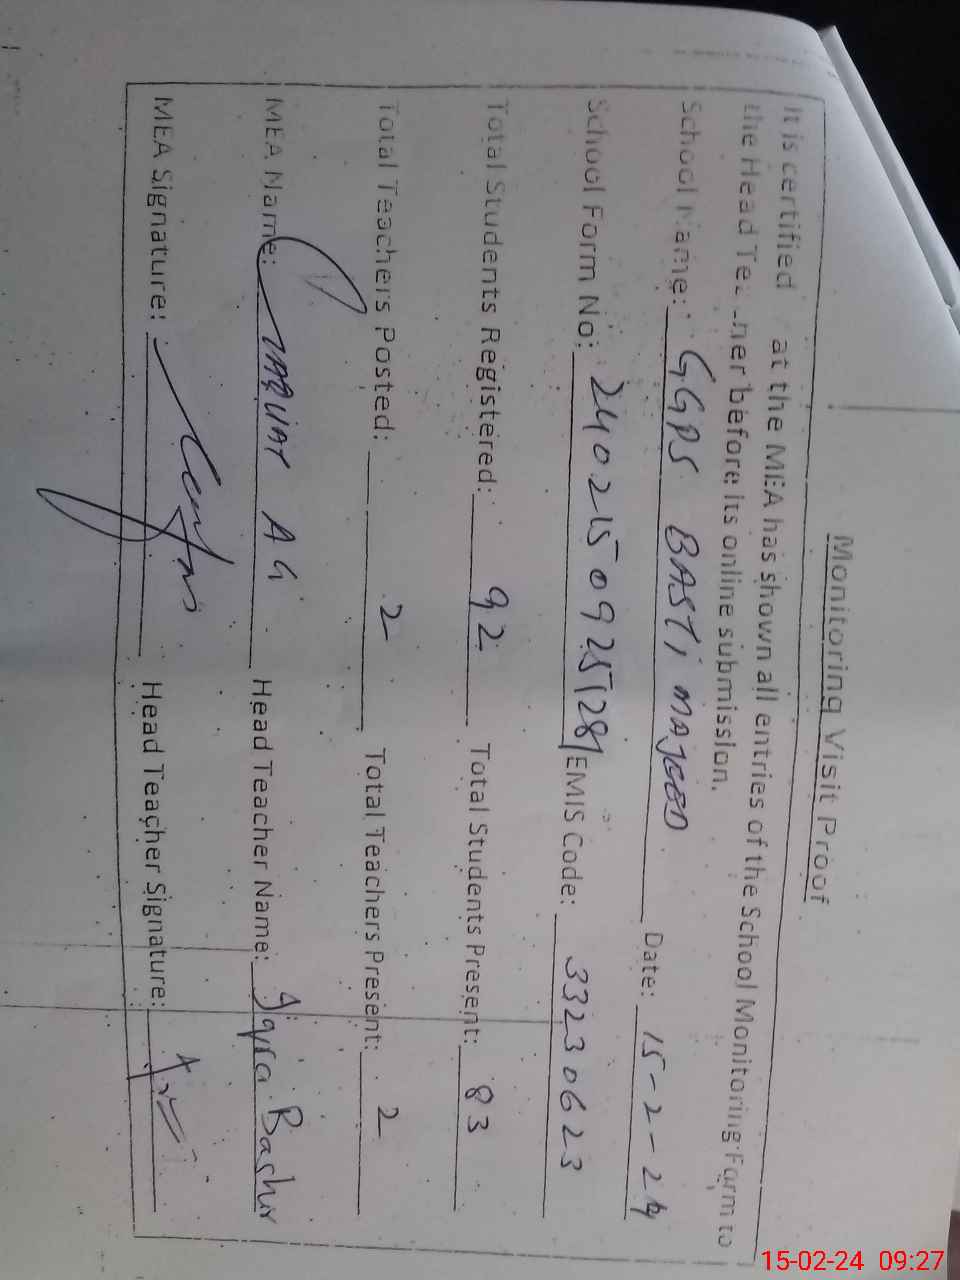 Monitoring Visit Proof
It is certified at the MEA has shown all entries of the School Monitoring Form to
the Head Te ner before its online submission.
School Name: GGPS BASTI MAJEED Date: 15-2-24
School Form No: 2402150925128 EMIS Code: 33230623
Total Students Registered: 92 Total Students Present: 83
Total Teachers Posted: 2 Total Teachers Present: 2
MEA Name: Head Teacher Name: Iqra Bashir
MEA Signature: Head Teacher Signature:
15-02-24 09:27